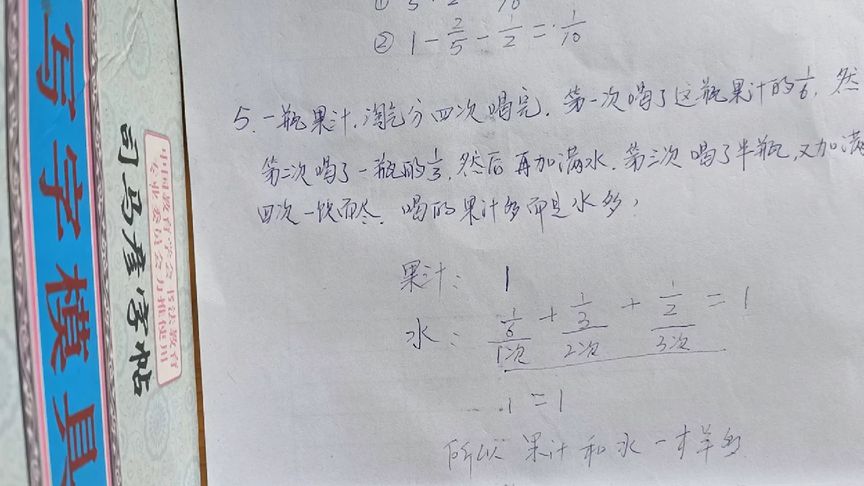 ② 1 - 2/5 - 1/2 = 1/10
5. 一瓶果汁,淘气分四次喝完. 第一次喝了这瓶果汁的1/6, 然
第二次喝了一瓶的1/3, 然后再加满水. 第三次喝了半瓶,又加满
四次一饮而尽. 喝的果汁多而是水多?
果汁: 1
水: 1/6 + 1/3 + 1/2 = 1
1次 2次 3次
1 = 1
所以 果汁和水一样多
写字模具
司马彦字帖
中国教育学会书法教育
专业委员会力推使用